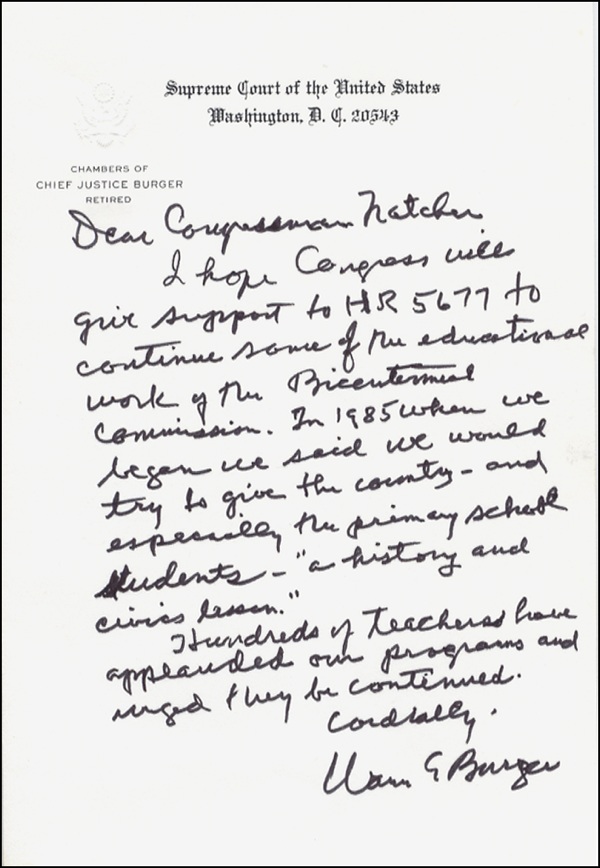 Supreme Court of the United States
Washington, D. C. 20543
CHAMBERS OF
CHIEF JUSTICE BURGER
RETIRED
Dear Congressman Natcher
I hope Congress will
give support to HR 5677 to
continue some of the educational
work of the Bicentennial
Commission. In 1985 when we
began we said we would
try to give the country – and
especially the primary school
students – "a history and
civics lesson."
Hundreds of teachers have
applauded our programs and
urged they be continued.
Cordially.
Warren E Burger